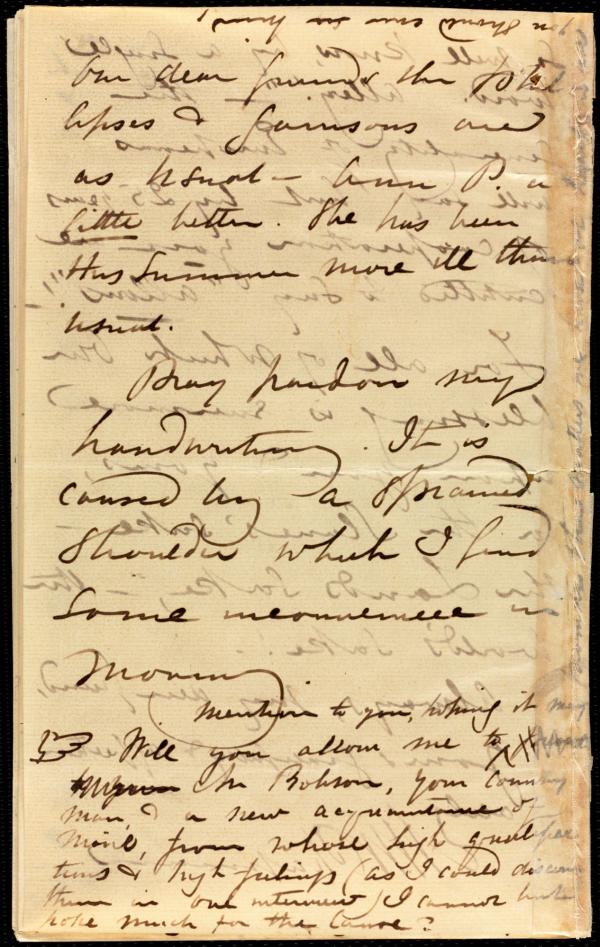 Our dear friends the Phil
lipses & Garrisons are
as usual - Ann P. a
little better. She has been
this Summer more ill than
usual.
Pray pardon my
handwriting. It is
caused by a sprained
shoulder which I find
some inconvenience in
moving
mention to you, hoping it may
Will you allow me to
Mr Robson, your country
man, & a new acquaintance of
mine, from whose high quali
ties & high feelings (as I could discern
them in one interview) I cannot but
hope much for the Cause?